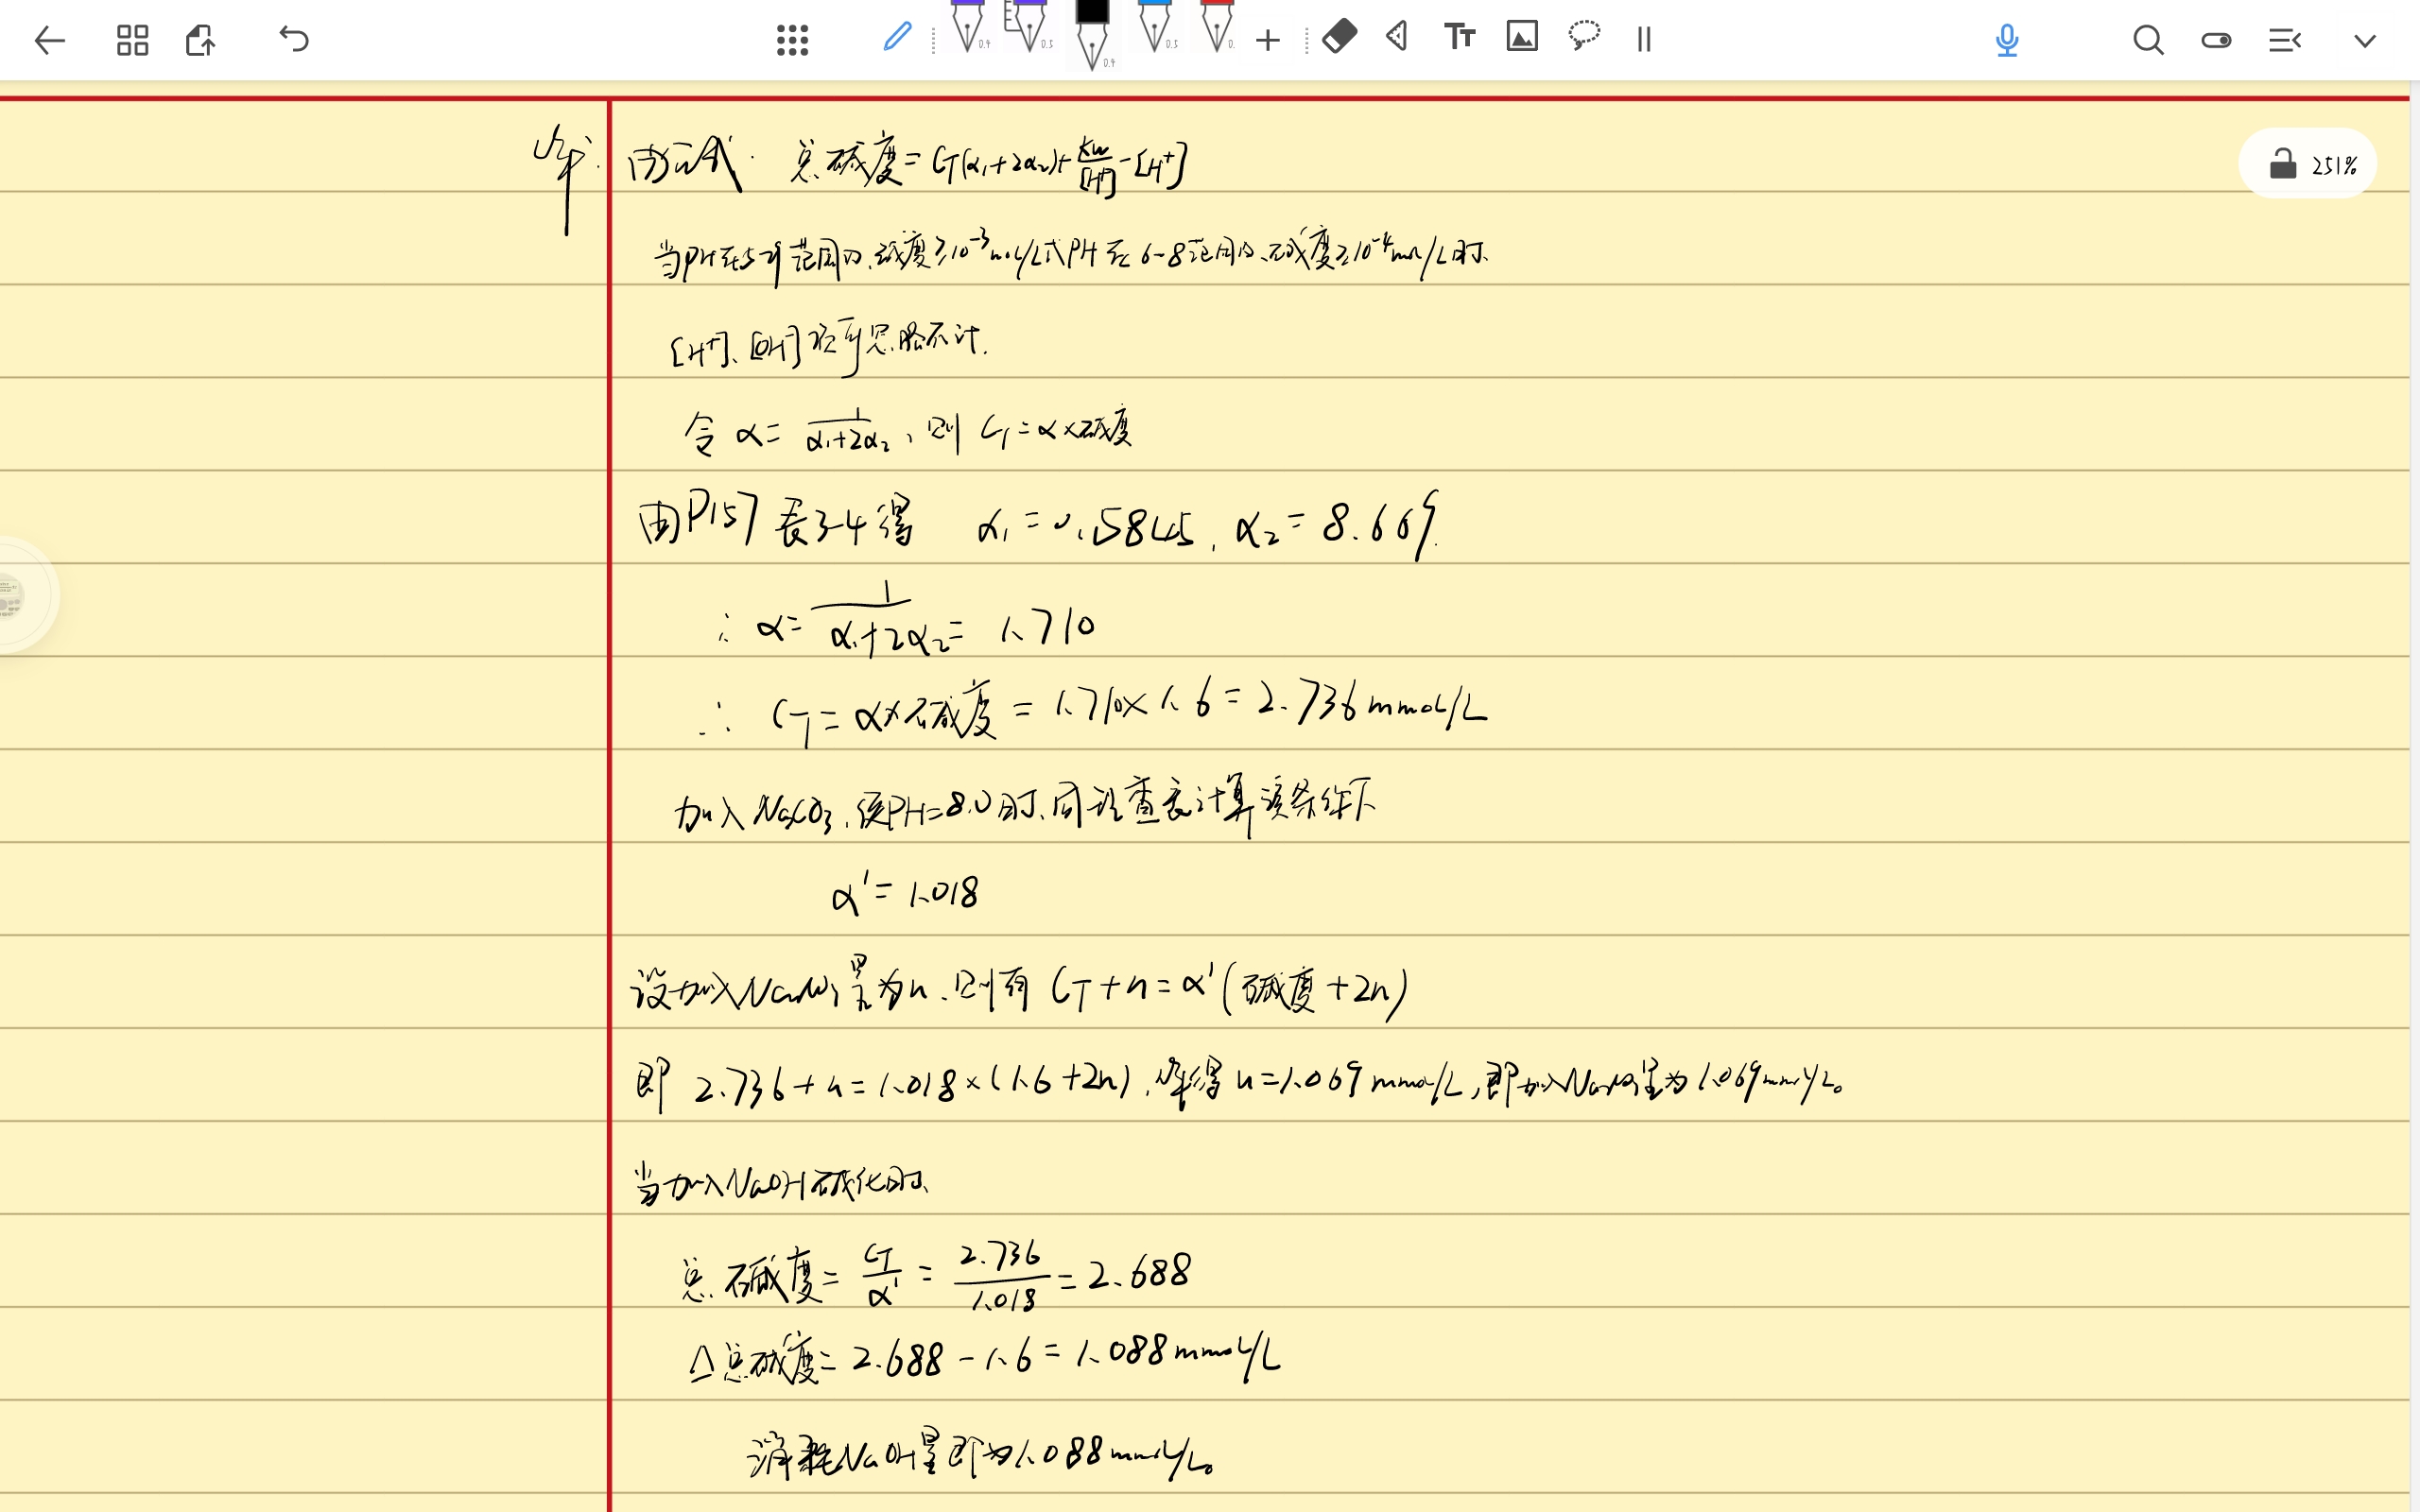 251%
解: 由公式: 总碱度=C_T(α₁+2α₂)+Kw/[H⁺]-[H⁺]
当pH在5-9范围内、碱度≥10⁻³mol/L或PH在6-8范围内、碱度≥10⁻⁴mol/L时、
[H⁺]、[OH⁻]项可忽略不计.
令 α=1/(α₁+2α₂), 则 C_T=α×碱度
由P157 表3-4得 α₁=0.5845, α₂=8.669
∴ α=1/(α₁+2α₂)=1.710
∴ C_T=α×碱度=1.710×1.6=2.736mmol/L
加入Na₂CO₃,使PH=8.0时、同理查表计算该条件下
α'=1.018
设加入Na₂CO₃量为n、则有 C_T+n=α'(碱度+2n)
即 2.736+n=1.018×(1.6+2n),解得n=1.069mmol/L,即加入Na₂CO₃量为1.069mmol/L。
当加入NaOH碱化时、
总碱度=C_T/α'=2.736/1.018=2.688
Δ总碱度=2.688-1.6=1.088mmol/L
消耗NaOH量即为1.088mmol/L。